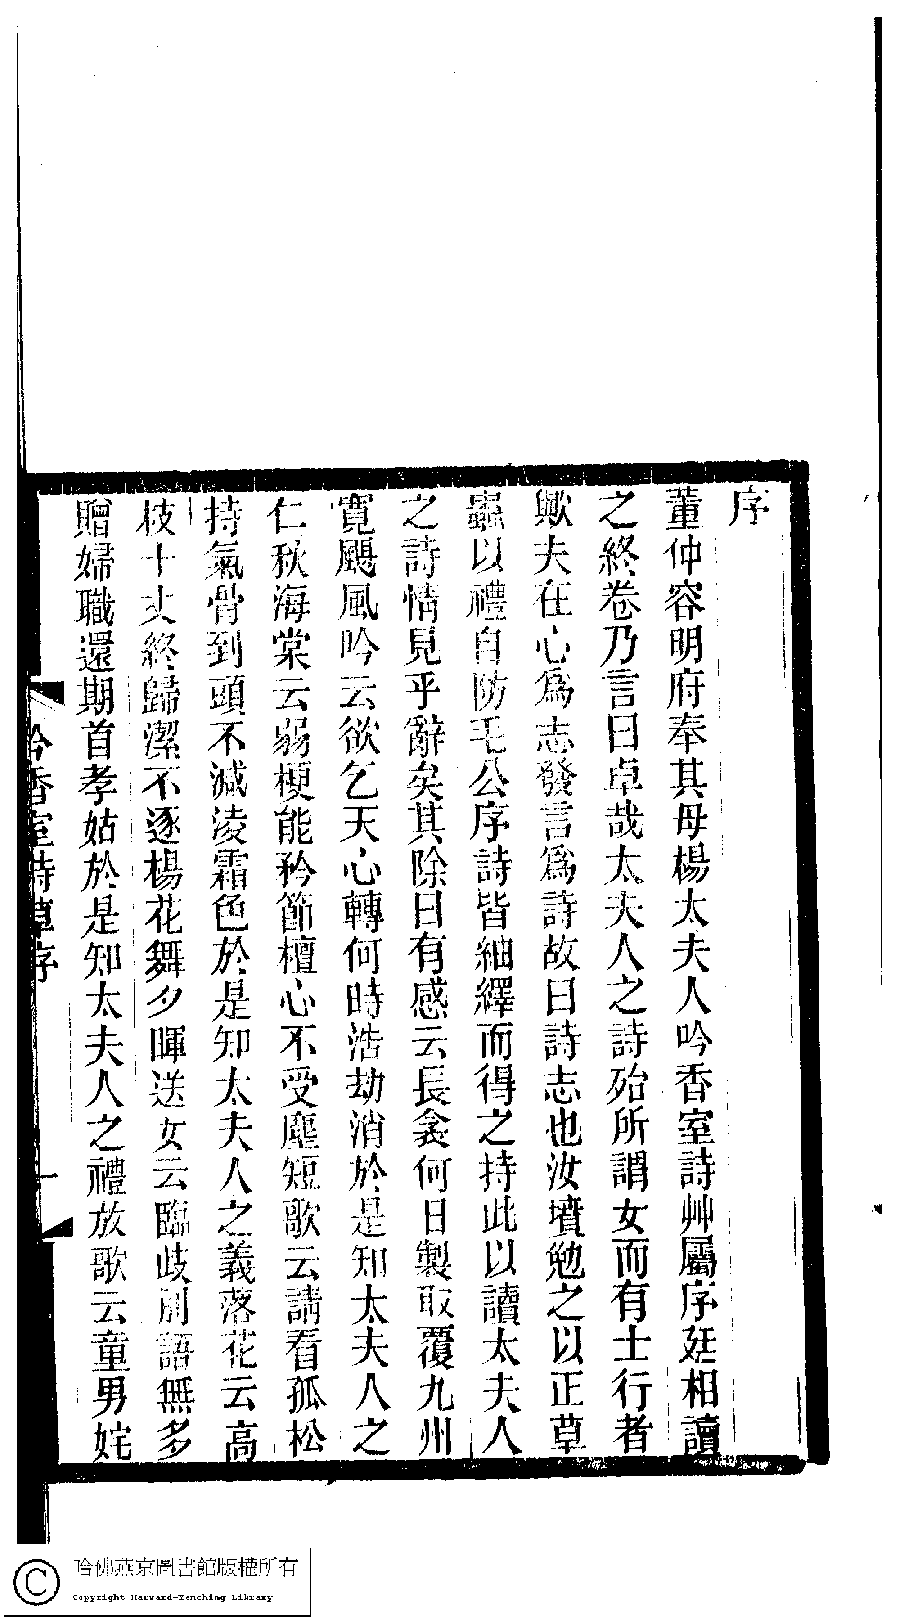 序
董仲容明府奉其母楊太夫人吟香室詩艸屬序廷相讀
之終卷乃言曰卓哉太夫人之詩殆所謂女而有士行者
歟夫在心爲志發言爲詩故曰詩志也汝墳勉之以正草
蟲以禮自防毛公序詩皆紬繹而得之持此以讀太夫人
之詩情見乎辭矣其除日有感云長衾何日製取覆九州
寬颶風吟云欲乞天心轉何時浩劫消於是知太夫人之
仁秋海棠云弱梗能矜節檀心不受塵短歌云請看孤松
持氣骨到頭不減淩霜色於是知太夫人之義落花云高
枝十丈終歸潔不逐楊花舞夕暉送女云臨歧別語無多
贈婦職還期首孝姑於是知太夫人之禮放歌云童男姹
吟香室詩草序
一
哈佛燕京圖書館版權所有
Copyright Harvard-Yenching Library